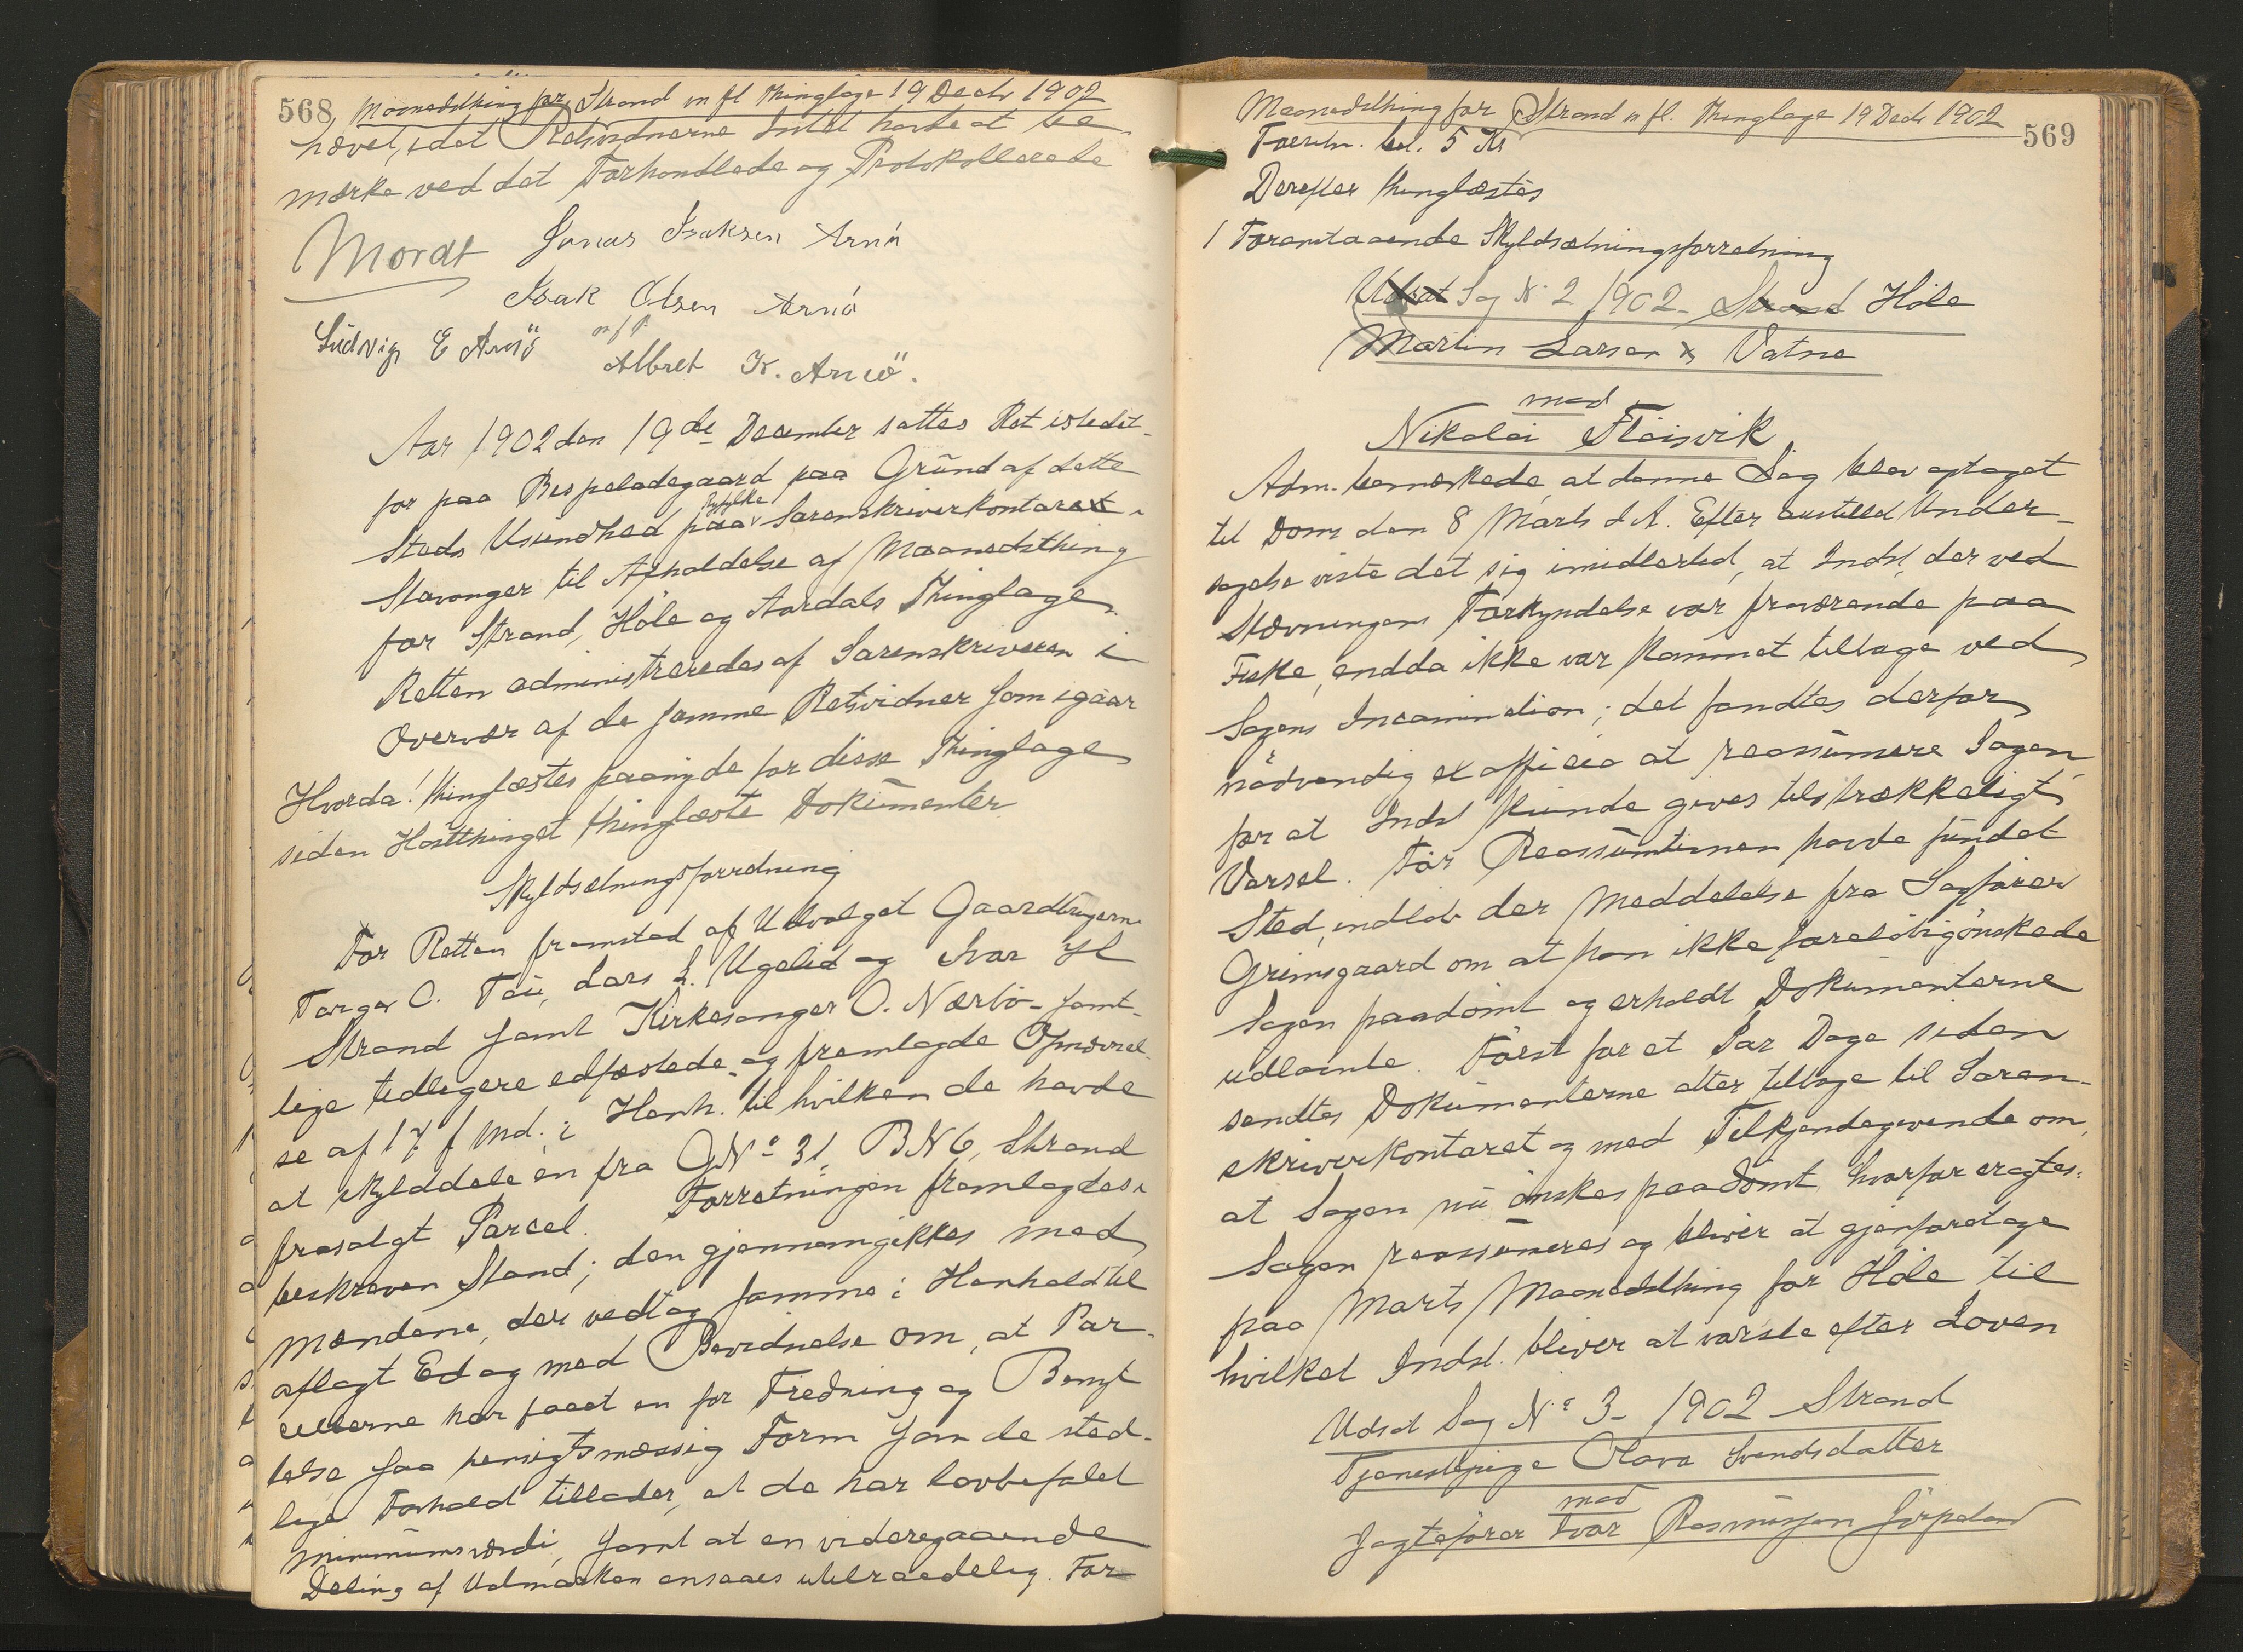 568 Maanedsthing for Strand m fl Thinglage 19 Decbr 1902
hævet, idet Retsvidnerne Intet havde at be-
mærke ved det Forhandlede og Protokollerede
Mordt Jonas Isaksen Arnø
Isak Olsen Arnø
Ludvig E Arnø m f P
Albret K. Arnø.
Aar 1902 den 19de December sattes Ret istedet-
for paa Bespeladegaard paa Grund af dette
Steds Usundhed paa Ryfylke Sorenskriverkontoret i
Stavanger til Afholdelse af Maanedsthing
for Strand, Høle og Aardals Thinglage.
Retten administreredes af Sorenskriveren i
Overvær af de samme Retsvidner som igaar
Hvorda! thinglæstes paany de for disse Thinglage
siden Høstthinget thinglæste Dokumenter
Skyldsætningsforretning
For Retten fremstod af Udvalget Gaardbrugerne
Torger O. Tou, Lars L. Ugelid og Ivar H
Strand samt Kirkesanger O. Nærbø - samt-
lige tidligere edfæstede - og fremlagde Opnævnel-
se af 17 f Md. i Henh. til hvilken de havde
at skylddele en fra GNo 31, BN 6, Strand
frasolgt Parcel. Forretningen fremlagdes i
beskreven Stand; den gjennemgikkes med
Mændene, der vedtog samme i Henhold til
aflagt Ed og med Bevidnelse om, at Par-
cellerne har faaet en for Fredning og Benyt
telse saa hensigtsmæssig Form som de sted-
lige Forhold tillader, at de har lovbefalet
Minimumsværdi, samt at en videregaaende
Deling af Udmarken ansaaes utilraadelig. For
Maanedsthing for Strand m fl. Thinglage 19 Decbr 1902 569
Forretn. bet. 5 Kr
Derefter thinglæstes
1 Foranstaaende Skyldsætningsforretning
Udsat Sag No 2 1902 - Strand Høle
Martin Larsen Vatne
med
Nikolai Fløisvik
Adm. bemærkede, at denne Sag blev optaget
til Doms den 8 Marts d A. Efter anstilled Under-
søgelse viste det sig imidlertid, at Indst, der ved
Stævningens Forkyndelse var fraværende paa
Fiske, endda ikke var kommet tilbage ved
Sagens Incamination; det fandtes derfor
nødvendig ex officio at reassumere Sagen
for at Indst kunde gives tilstrækkeligt
Varsel. Før Reassumtionen havde fundet
Sted, indløb der Meddelelse fra Sagfører
Grimsgaard om at han ikke foreløbig ønskede
Sagen paadømt og erholdt Dokumenterne
udlaante. Først for et Par Dage siden
sendtes Dokumenterne atter tilbage til Soren-
skriverkontoret og med Tilkjendegivende om,
at Sagen nu ønskes paadømt hvorfor eragtes:
Sagen reassumeres og bliver at gjenforetage
paa Marts Maanedsthing for Høle til
hvilket Indst. bliver at varsle efter Loven
Udsat Sag No 3 - 1902 Strand
Tjenestepige Olava Svendsdatter
med
Jagtefører Ivar Rasmussen Jørpeland